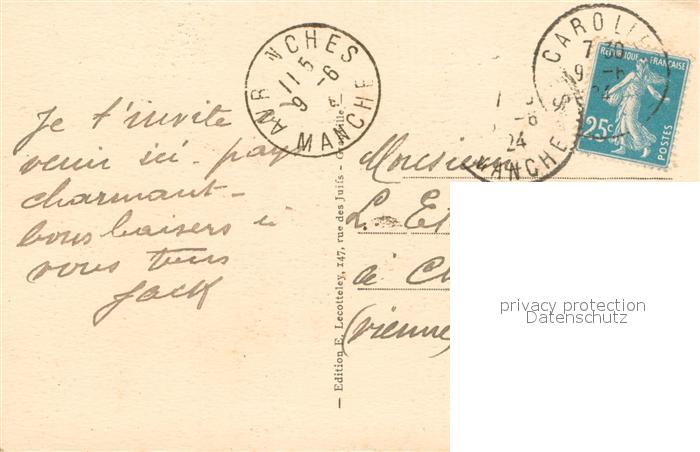 AVRANCHES
11 5
9 -6
MANCHE
CAROLLES
7 30
9 -6
24
MANCHE
REPUBLIQUE FRANÇAISE
25c
POSTES
-6
24
MANCHE
Je t'invite à
venir ici - pays
charmant -
bons baisers à
vous tous
Jack
— Edition E. Lecotteley, 147, rue des Juifs - Granville —
Monsieur
L.
à
(Vienne)
privacy protection
Datenschutz